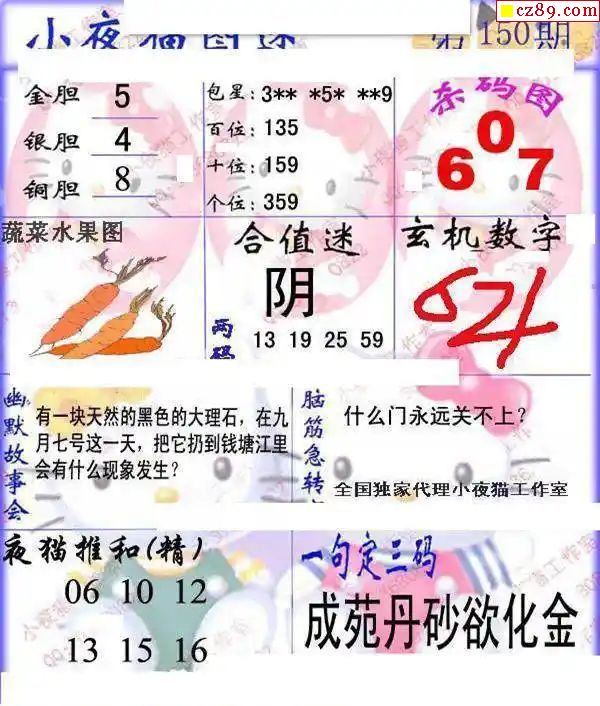 cz89.com
小夜猫图迷 第150期
金胆 5
银胆 4
铜胆 8
包星: 3** *5* **9
百位: 135
十位: 159
个位: 359
杀码图
607
蔬菜水果图
合值迷
阴
两码
13 19 25 59
玄机数字
幽默故事会
有一块天然的黑色的大理石，在九
月七号这一天，把它扔到钱塘江里
会有什么现象发生？
脑筋急转
什么门永远关不上？
全国独家代理小夜猫工作室
夜猫推和(精)
06 10 12
13 15 16
一句定三码
成苑丹砂欲化金